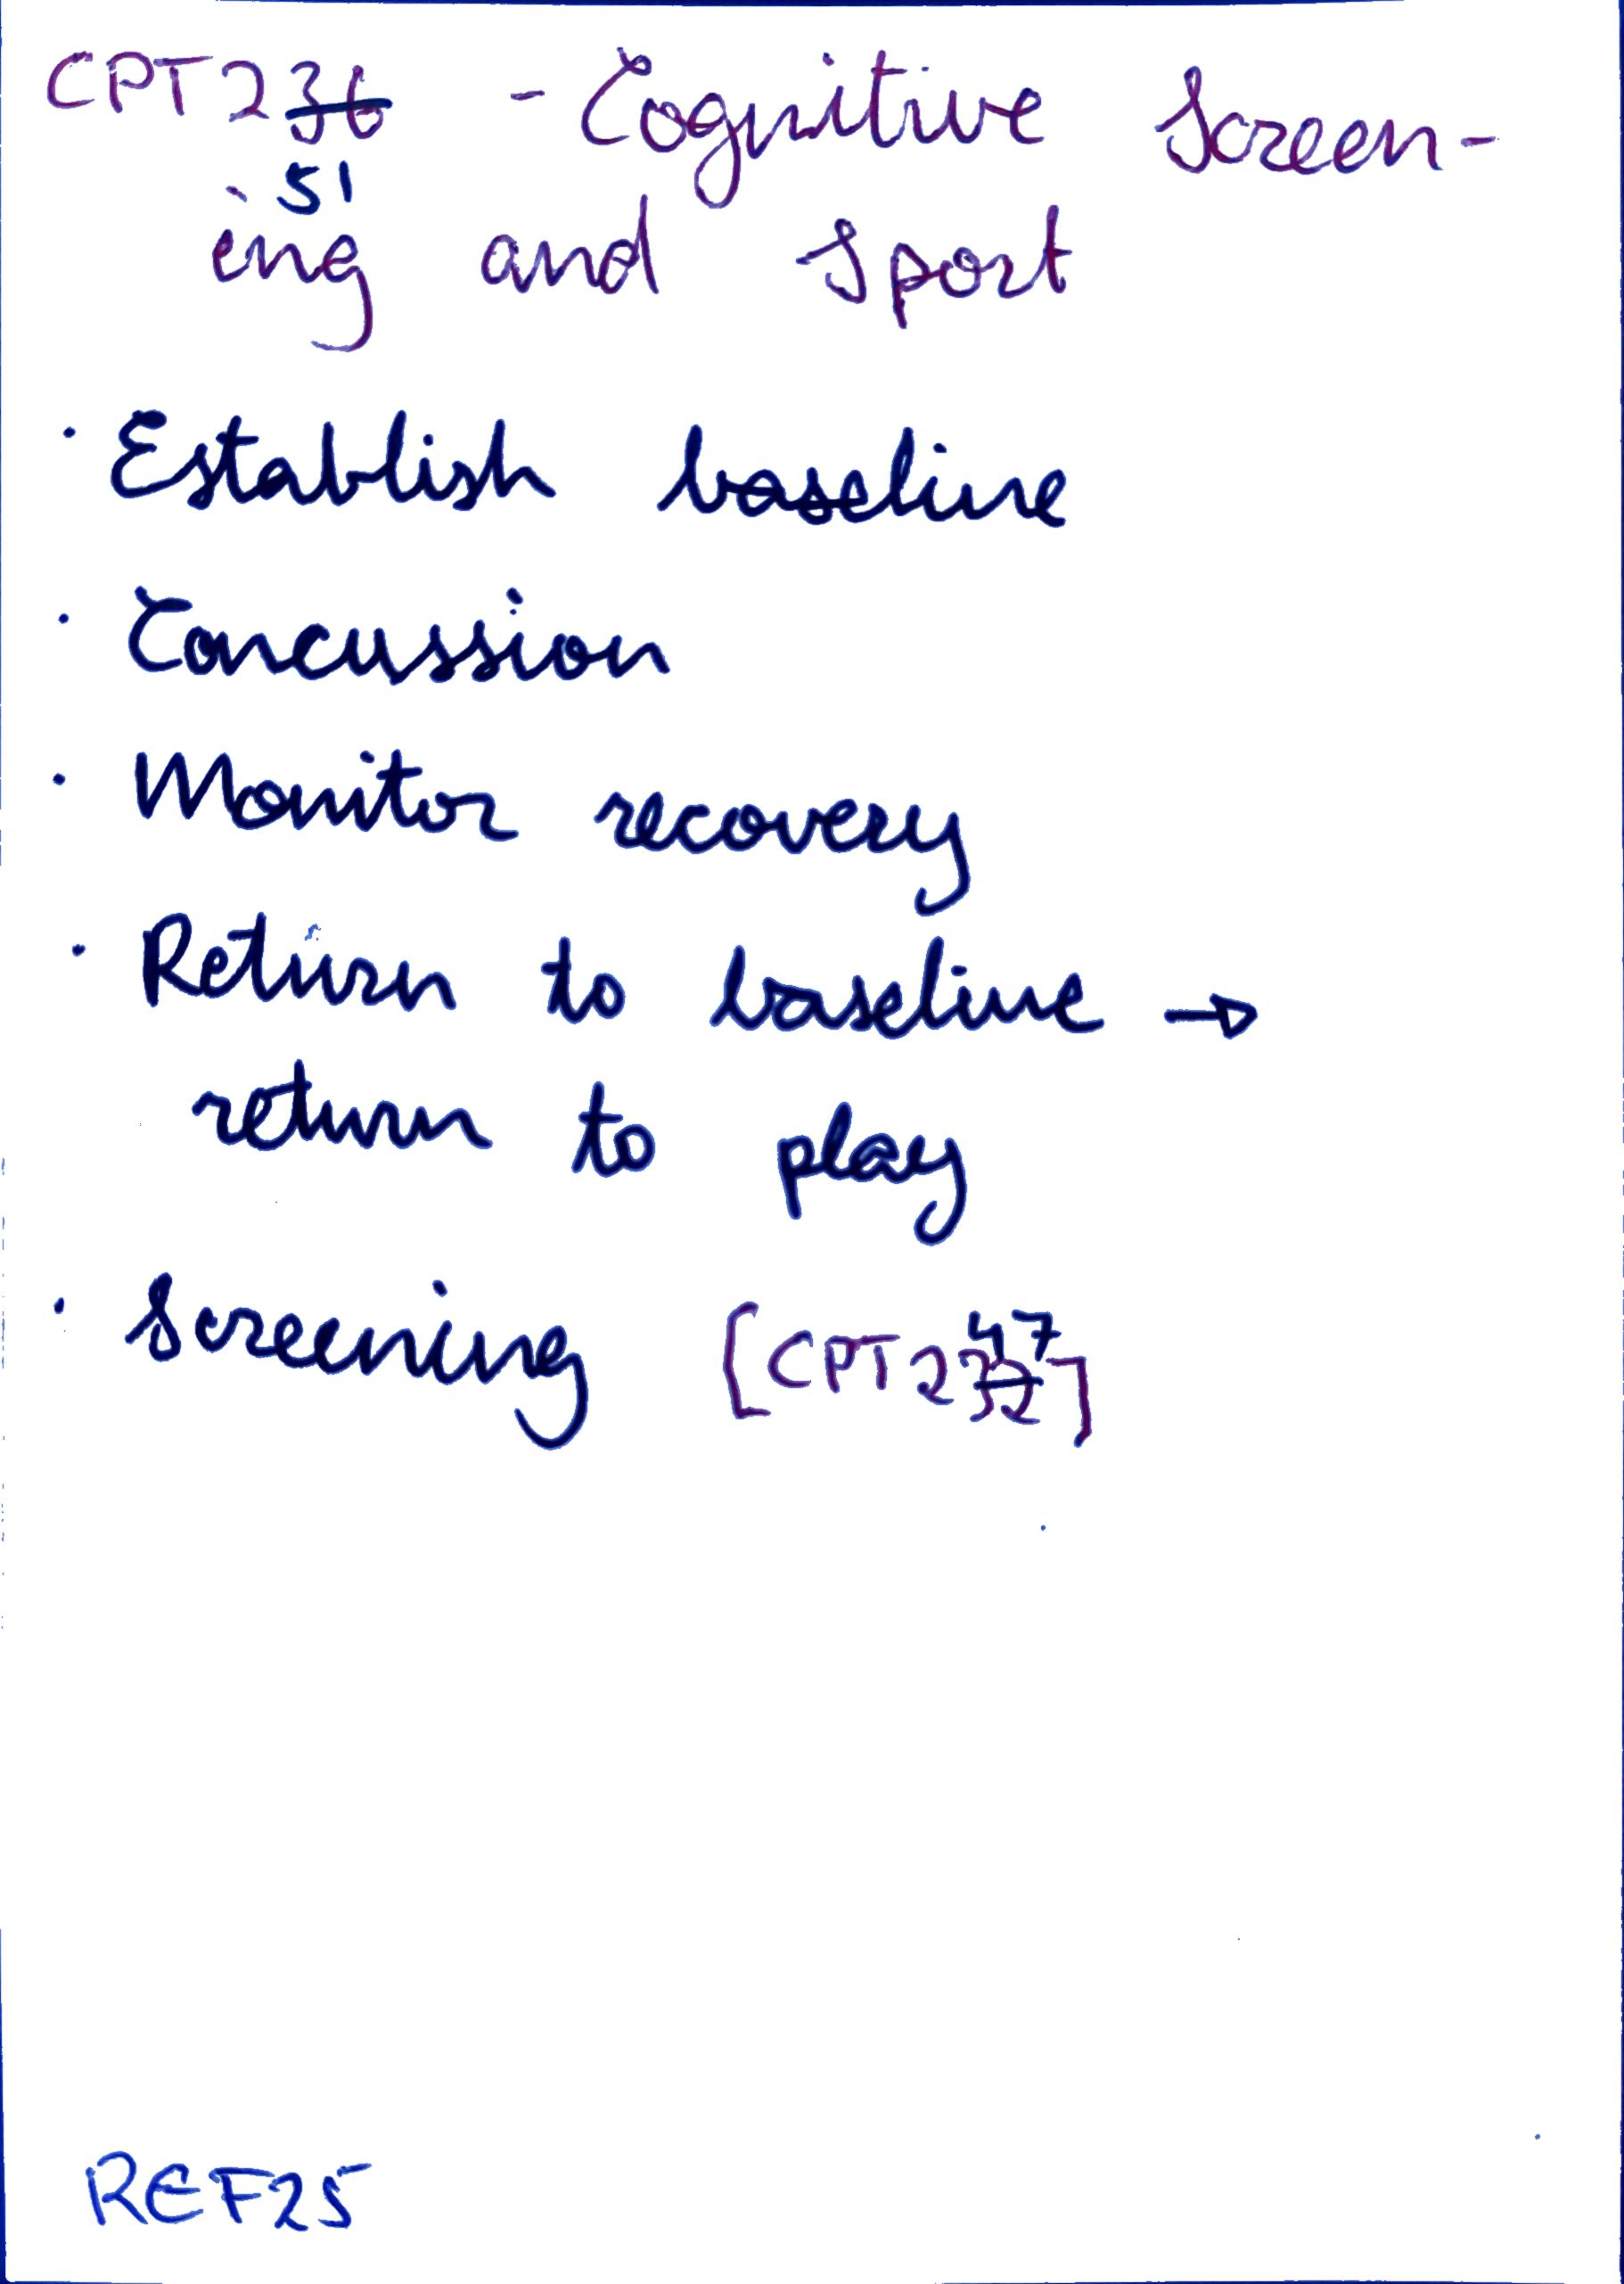 CPT236 - Cognitive Screen-
51
ing and Sport
· Establish baseline
· Concussion
· Monitor recovery
· Return to baseline →
return to play
· Screening [CPT23247]
REF25